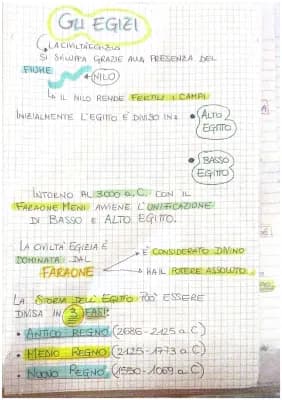 GLI EGIZI
LA CIVILTÀ EGIZIA
SI SVILUPPA GRAZIE ALLA PRESENZA DEL
FIUME
NILO
↳ IL NILO RENDE FERTILI I CAMPI
INIZIALMENTE L'EGITTO È DIVISO IN:
• ALTO
EGITTO
• BASSO
EGITTO
INTORNO AL 3000 a.C. CON IL
FARAONE MENI AVVIENE L'UNIFICAZIONE
DI BASSO E ALTO EGITTO.
LA CIVILTÀ EGIZIA È
DOMINATA DAL
FARAONE
→ È CONSIDERATO DIVINO
→ HA IL POTERE ASSOLUTO
LA STORIA DELL'EGITTO PUÒ ESSERE
DIVISA IN 3 FASI:
• ANTICO REGNO (2686-2125 a.C)
• MEDIO REGNO (2125-1773 a.C)
• NUOVO REGNO (1550-1069 a.C)